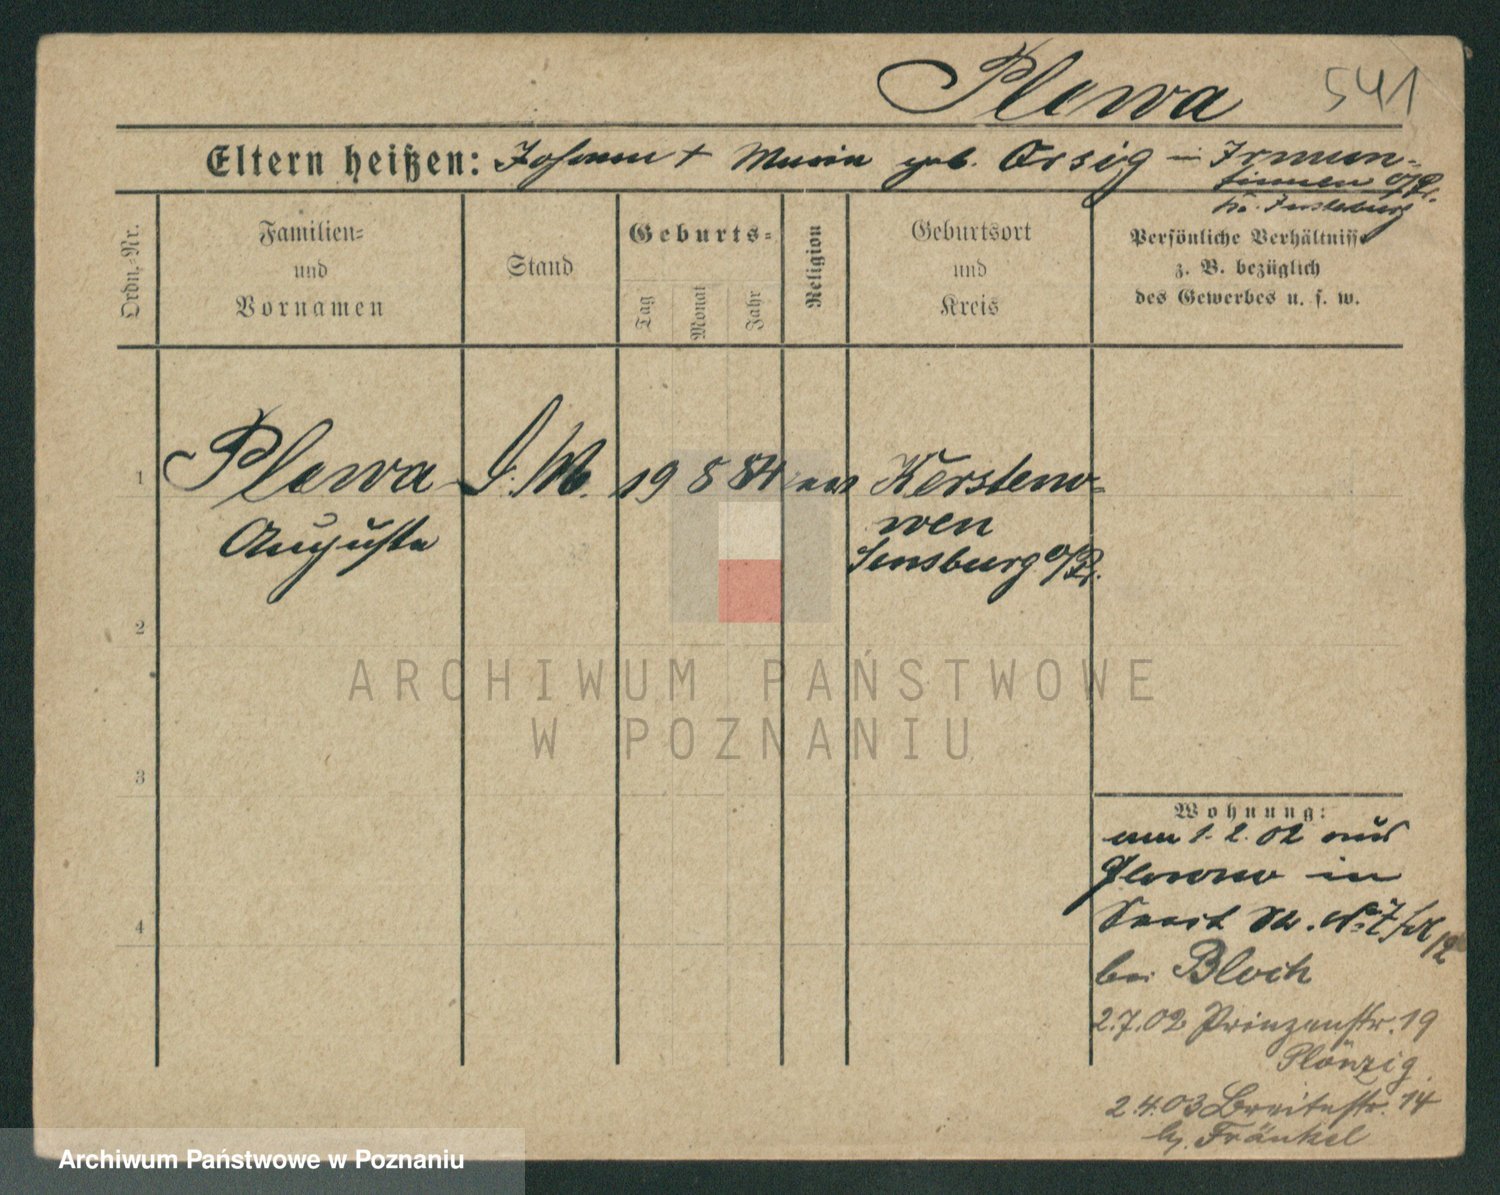 Plewa 541
Eltern heißen: Johann + Maria geb. Orsig – in
O/Pr.
Kr. Insterburg
Ordn.-Nr.
Familien-
und
Vornamen
Stand
Geburts-
Tag
Monat
Jahr
Religion
Geburtsort
und
Kreis
Persönliche Verhältnisse
z. B. bezüglich
des Gewerbes u. s. w.
1 Plewa D. M. 19 8 84 ev Kerstenow-
Auguste wen
Sensburg O/Pr.
2
3
4
Wohnung:
am 1. 2. 02 aus
in
bei Bloch
2.7.02 Prinzenstr. 19
Plönzig
2 4.03 Breitestr. 14
b. Fränkel
ARCHIWUM PAŃSTWOWE
W POZNANIU
Archiwum Państwowe w Poznaniu